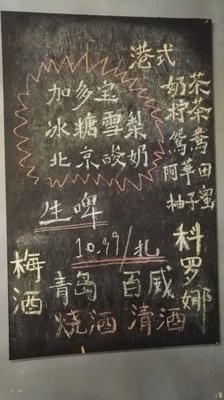 港式
奶茶
柠茶
鸳鸯
阿華田
柚子蜜
加多宝
冰糖雪梨
北京酸奶
生啤
10.99/扎
梅酒
青岛
百威
科罗娜
烧酒
清酒